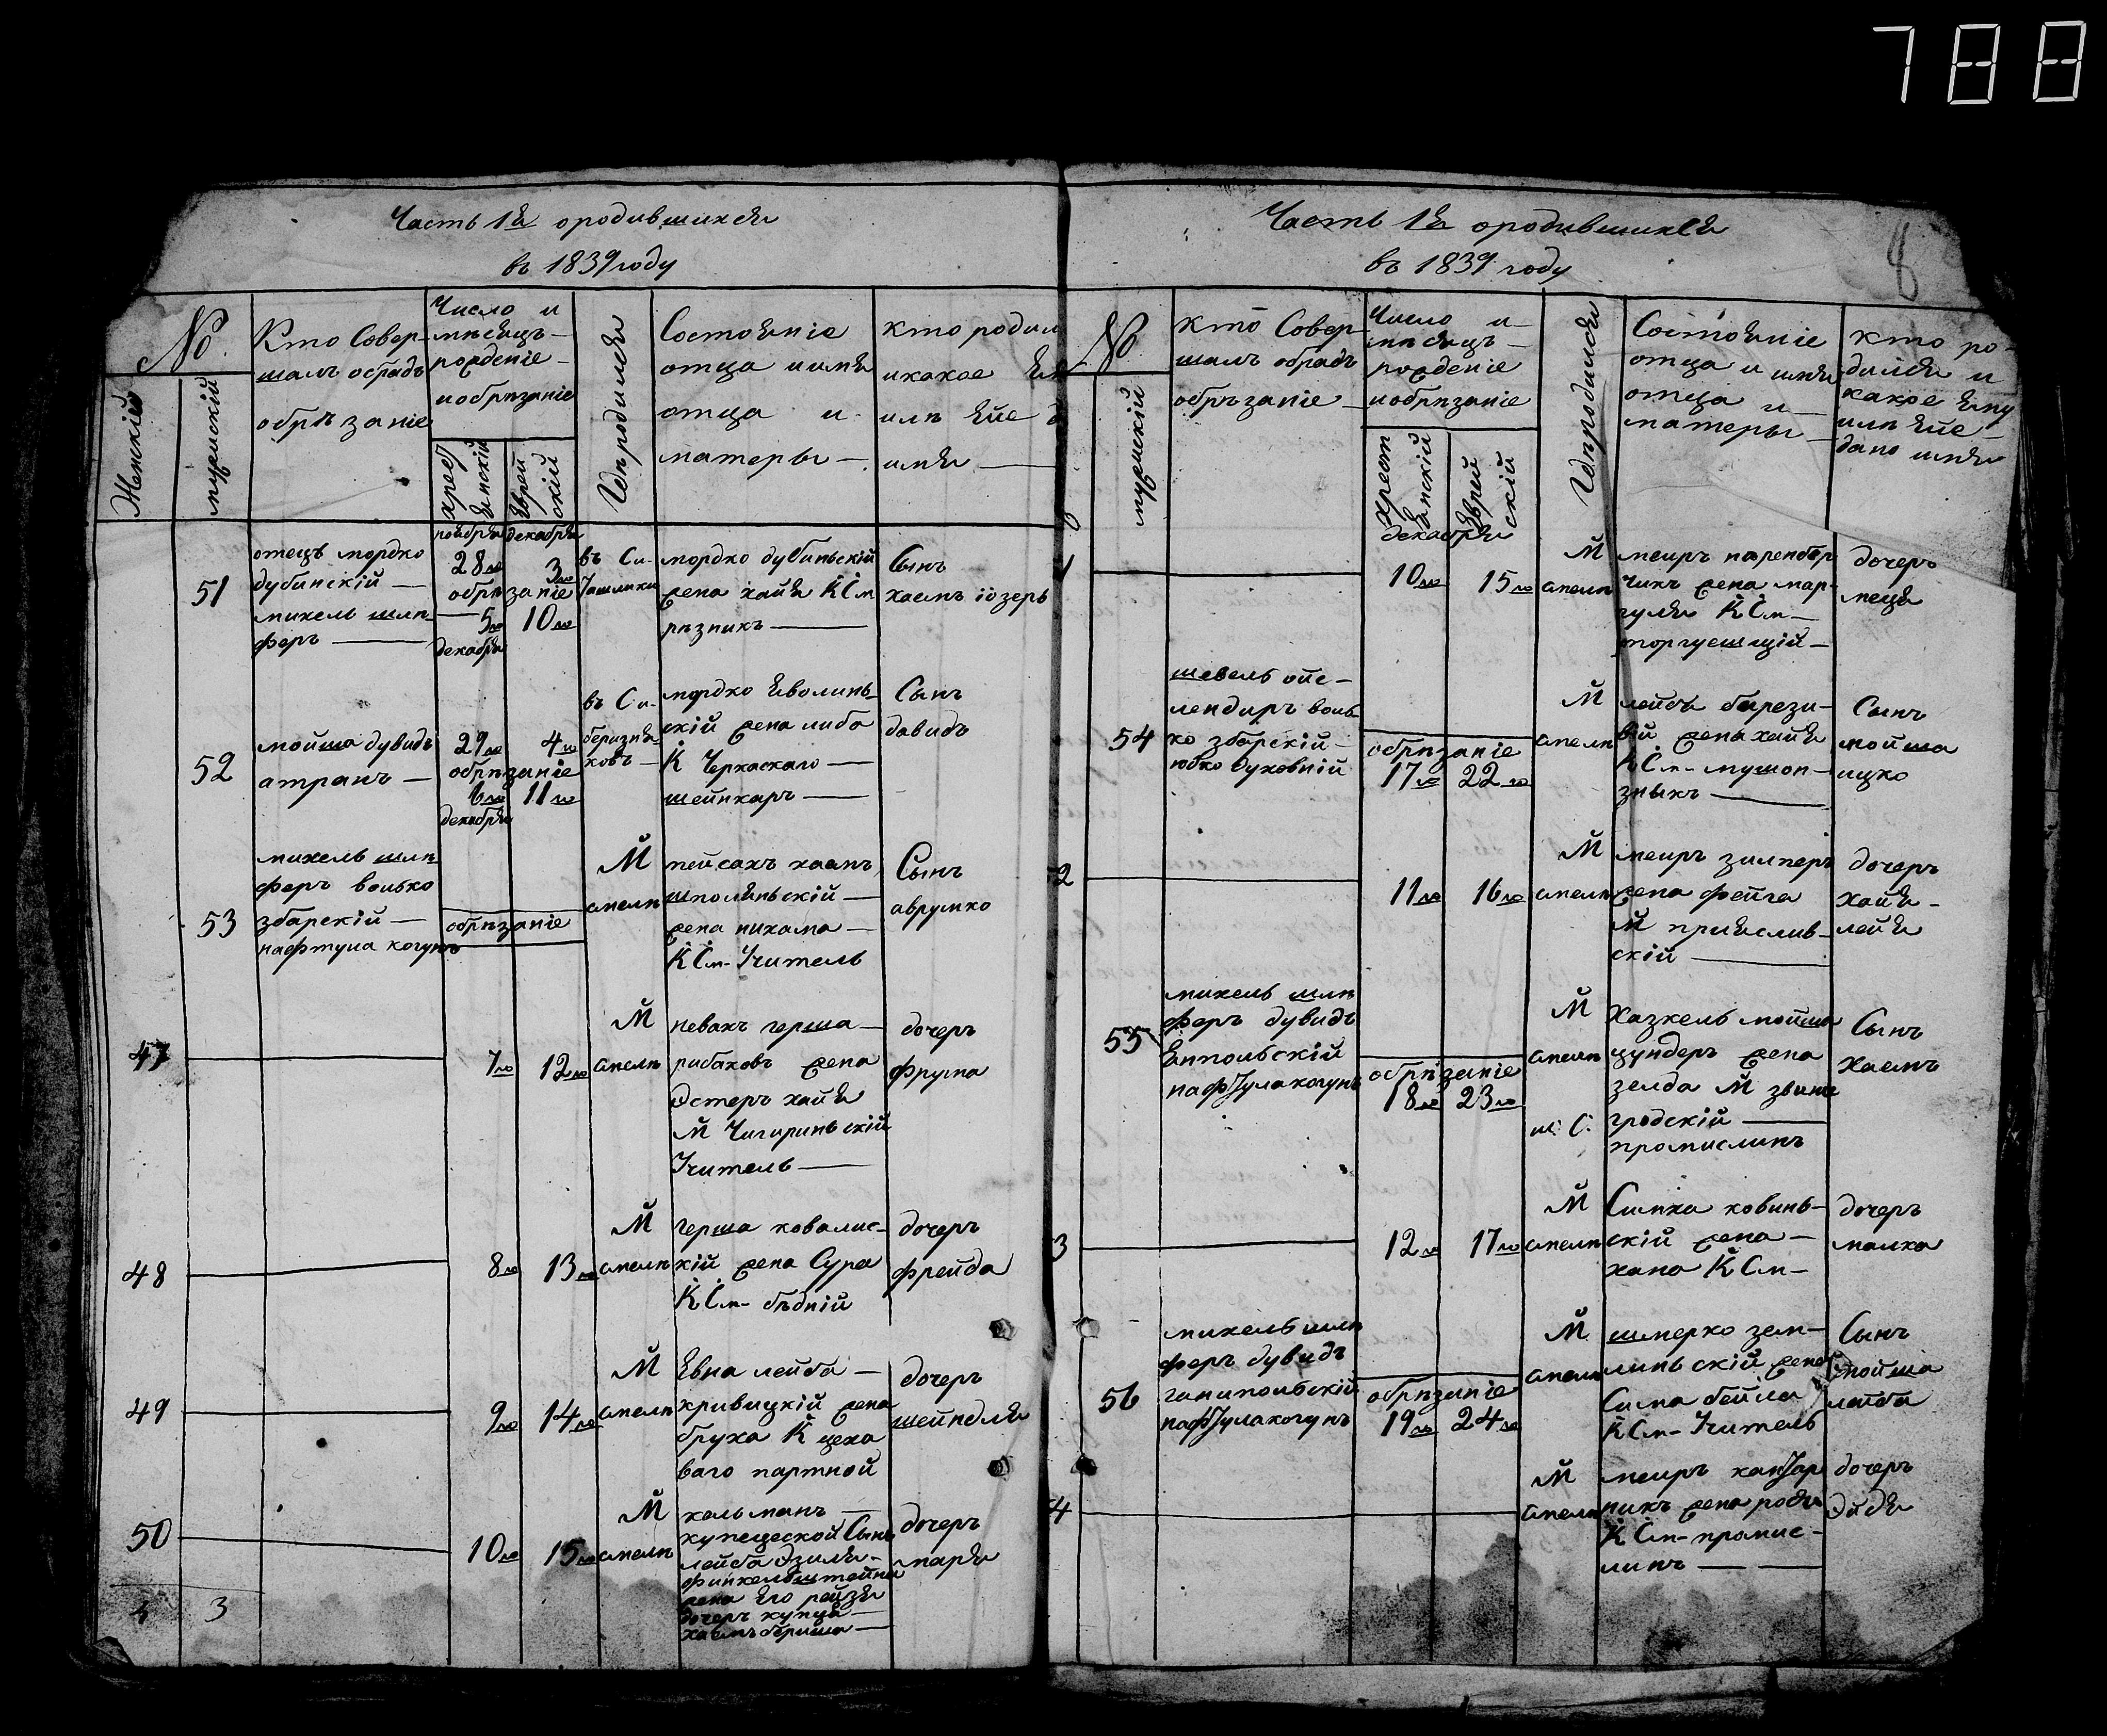 788
Часть 1я ородившихся
въ 1839 году
№
Женскій
мужискій
Кто Совер-
шалъ обрадъ
обрѣзаніе
Число и
мѣсяцъ
рожденіе
и обрѣзаніе
хрест
еянскій
Еврей
скій
Гдѣ родился
Состояніе
отца и имя
отца и
матеры
кто родил
икакое ем
илѣ Ейе д
имя
51
отецъ мордко
дубинскій
михель шлі
феръ
ноября декабря
28го 3го
обрѣзаніе
5го 10го
декабря
въ Си.
Ташлики
мордко дубиньскій
жена хайя К См
рѣзникъ
Сынъ
хаемъ іозеръ
52
мойша дувидъ
атранъ
29го 4го
обрѣзаніе
6го 11го
декабря
въ Си.
березня
ковъ
мордко Яволинь
скій жена либа
К Черкаскаго
шейнкаръ
Сынъ
давидъ
53
михель шлі
феръ волько
збарскій
нафтула когунъ
обрѣзаніе
М
смели
пейсахъ хаемъ
шполяньскій
жена нихама
К См Учитель
Сынъ
аврумко
47
7го 12го
М
смели
невахъ герша
рибаковъ жена
Эстеръ хайя
М Чигириньскій
Учитель
дочеръ
фрума
48
8го 13го
М
смели
герша ковалис
кій жена Сура
К См бѣдній
дочеръ
фрейда
49
9го 14го
М
смели
Евна лейба
кривицкій жена
бруха К цеха
ваго партной
дочеръ
шейндля
50
10го 15го
М
смели
кальманъ
купецеской Сынъ
лейба Эзиля
финкельштейна
жена Его рейзя
дочеръ купца
хаемъ бериша
дочеръ
маря
4 3
Часть 1я ородившихся
въ 1839 году
8
№
мужискій
кто Совер
шалъ обрадъ
обрѣзаніе
Число и
мѣсяцъ
рожденіе
и обрѣзаніе
хрест
еянскій
Еврей
скій
Гдѣ родился
Состояніе
отца и имя
отца и
матеры
кто ро-
дился и
какое Ему
илѣ Ейе
дано имя
1
декабря
10го 15го
М
смели
меиръ
чикъ жена мар
гуля К См
торгуещій
дочеръ
50
54
шевель
лендиръ воль
ко збарскій
юдко духовній
обрѣзаніе
17го 22го
М
смели
лейба берези-
вій жена хайя
К См
зныкъ
Сынъ
мойша
ицко
2
11го 16го
М
смели
меиръ зилперъ
жена фейга
М
скій
дочеръ
хайя
лейя
55
михель шлі
феръ дувидъ
Ентольскій
нафтула когунъ
обрѣзаніе
18го 23го
М
смели
Хазкель мойша
цундеръ жена
зелда М звини
гродскій
промислинъ
Сынъ
Хаемъ
3
12го 17го
М
смели
Симха ковинь
скій жена
хана К См
дочеръ
малка
56
михель шлі
феръ дувидъ
ганипольскій
нафтула когунъ
обрѣзаніе
19го 24го
М
смели
шмерко зем
линьскій жена
Сима бейла
К См Учитель
Сынъ
мойша
лейба
4
М
смели
меиръ кантар
никъ жена родя
К См промис
линъ
дочеръ
Эйдя